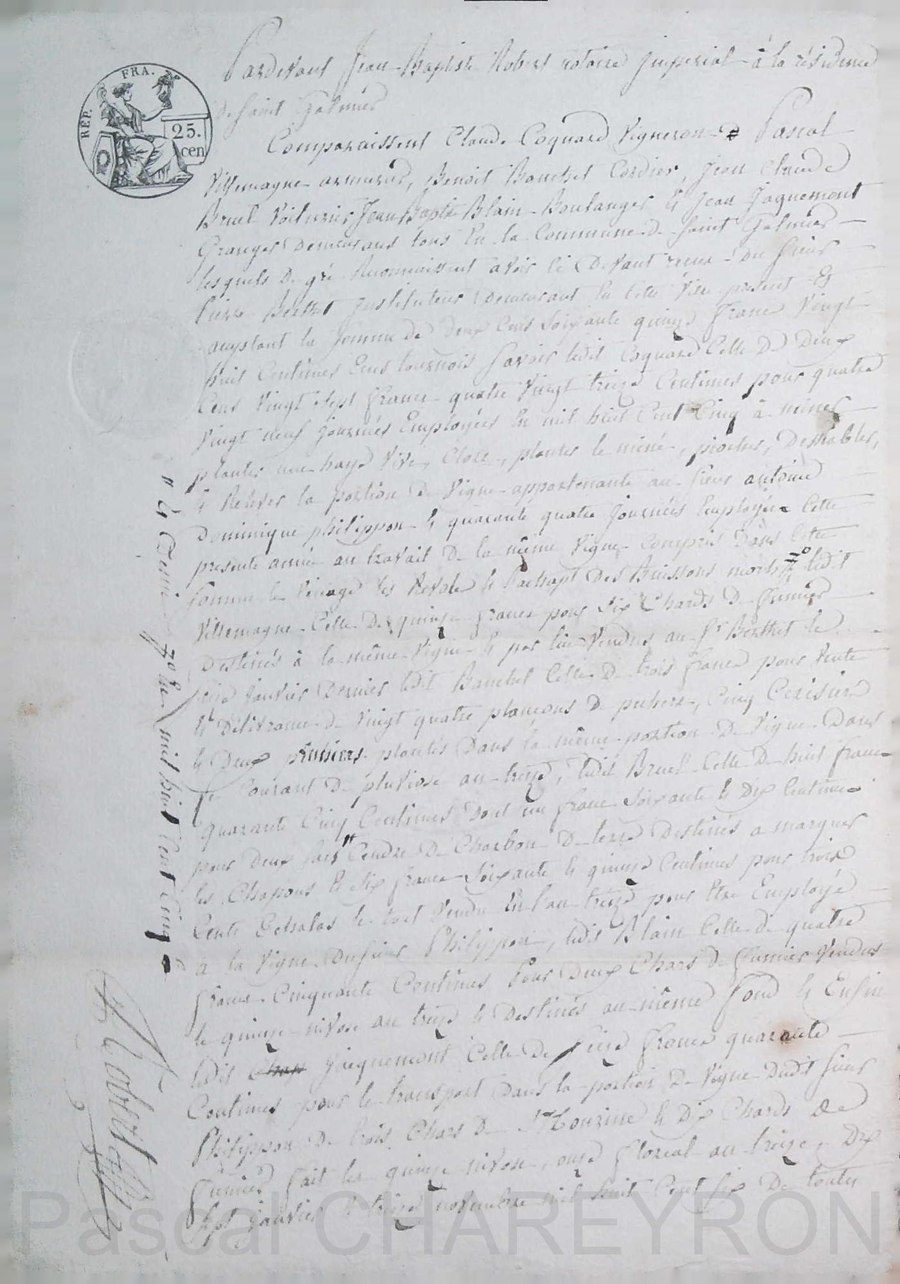 RÉP. FRA.
25.
cen
Pardevant Jean-Baptiste Robert notaire Imperial à la résidence
de Saint Galmier
Comparaissent Claude Coquard Vigneron, Pascal
Villemagne armurier, Benoit Banchet Cordier, Jean Claude
Bruel Voiturier Jean Bapte Blain Boulanger & Jean Jaquemont
Granger demeurans tous en la Commune de Saint Galmier
lesquels de gré reconnaissent avoir reçu devant nous du sieur
Pierre Berthet Instituteur demeurant en cette ville present et
acceptant la somme de deux cens soixante quinze francs Vingt
huit Centimes Ecus tournois savoir ledit Coquard Celle de deux
Cens Vingt sept francs quatre Vingt treize Centimes pour quatre
Vingt neuf journées Employées en mil huit Cent Cinq à miner
planter une haye Vive, Clore, planter le miné, piocher,
& Relever la portion de Vigne appartenante au sieur antoine
Dominique philippon & quarante quatre journées Employées Cette
presente année au travail de la même Vigne Compris dans Cette
somme le Vinage les & l'achapt des Buissons morts, ledit
Villemagne Celle de quinze francs pour six Chards de fumier
Destinés à la même Vigne & par lui Vendus au Sr Berthet le
janvier Dernier ledit Banchet Celle de trois francs pour Vente
& Délivrance de Vingt quatre plançons de , Cinq Cerisiers
& Deux pruniers plantés dans la même portion de Vigne dans
le Courant de pluviose an treize, ledit Bruel Celle de huit francs
quarante Cinq Centimes dont un franc soixante & dix Centimes
pour deux Cendre de Charbon de terre Destinés a marquer
les Chapons & six francs soixante & quinze Centimes pour trois
Cents Echalas le tout Vendu en l'an treize pour être Employé
à la Vigne du sieur Philippon, ledit Blain Celle de quatre
francs Cinquante Centimes pour deux Chars de fumier Vendus
le quinze nivose an treize & Destinés au même fond & Enfin
ledit Jacquemont Celle de seize francs quarante
Centimes pour le transport dans la portion de Vigne dudit sieur
Philippon de trois Chars de & dix Chards de
fumier fait les quinze nivose, onze floreal an treize, dix
sept janvier & treize novembre mil huit Cent six de toutes
mil huit Cent Cinq
Robert
Pascal CHAREYRON